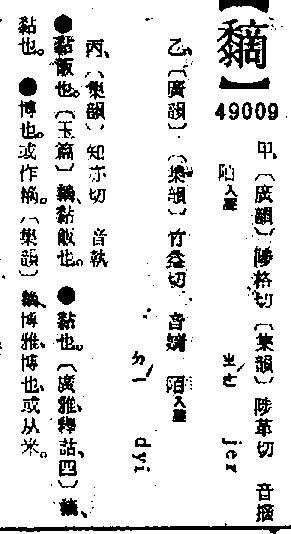 【】
49009
甲、〔廣韻〕陟格切〔集韻〕陟革切 音摘
陌入聲 ㄓㄜˊ jer
乙、〔廣韻〕〔集韻〕竹益切 音 陌入聲
ㄉㄧˊ dyi
丙、〔集韻〕知亦切 音執
●黏飯也。〔玉篇〕黏飯也。●黏也。〔廣雅、釋詁、四〕、
黏也。●博也。或作。〔集韻〕、博雅、博也、或从米。